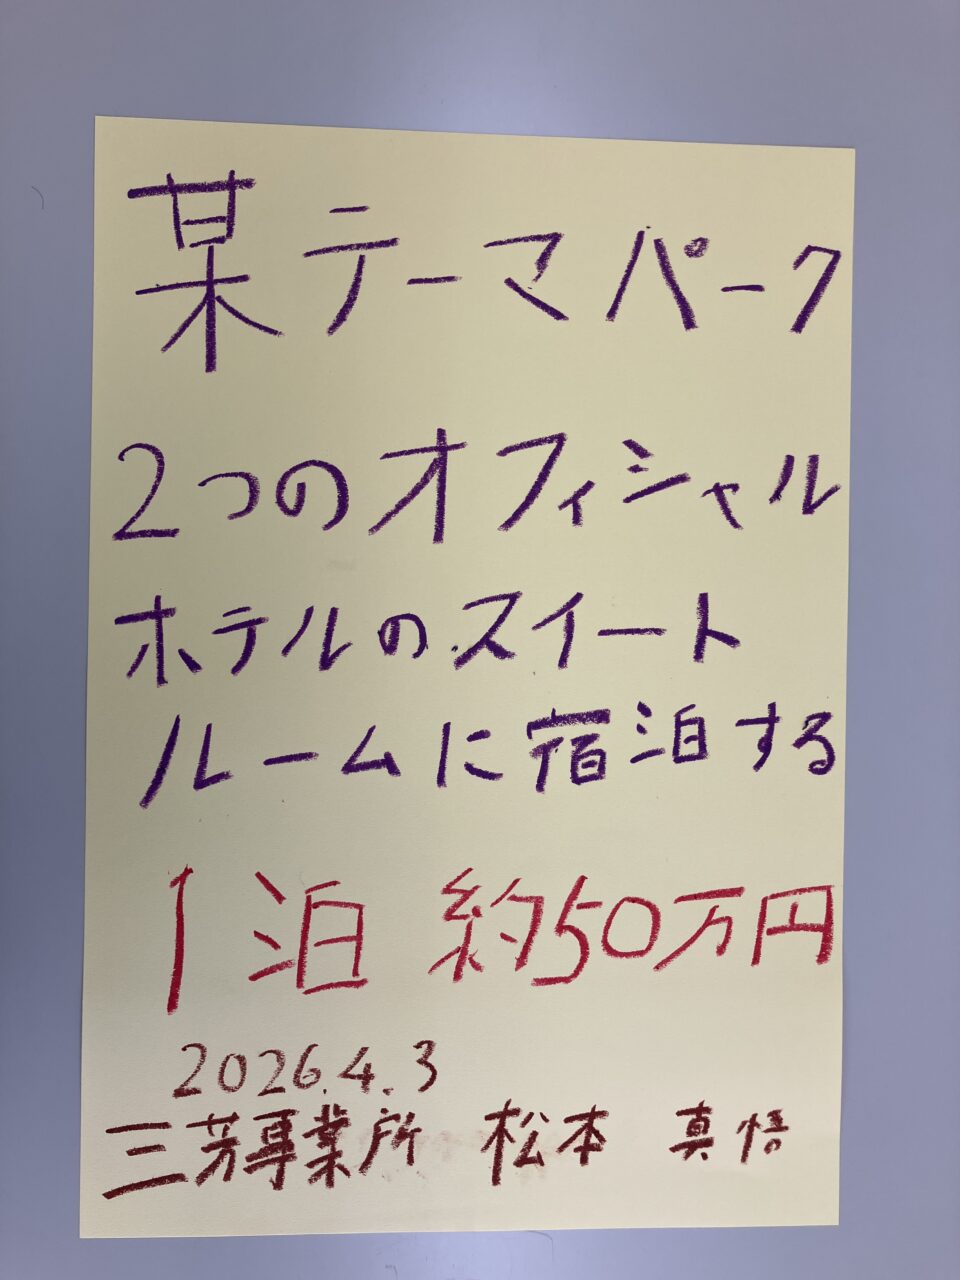 某テーマパーク
2つのオフィシャル
ホテルのスイート
ルームに宿泊する
1泊 約50万円
2026.4.3
三芳専業所 松本 真悟